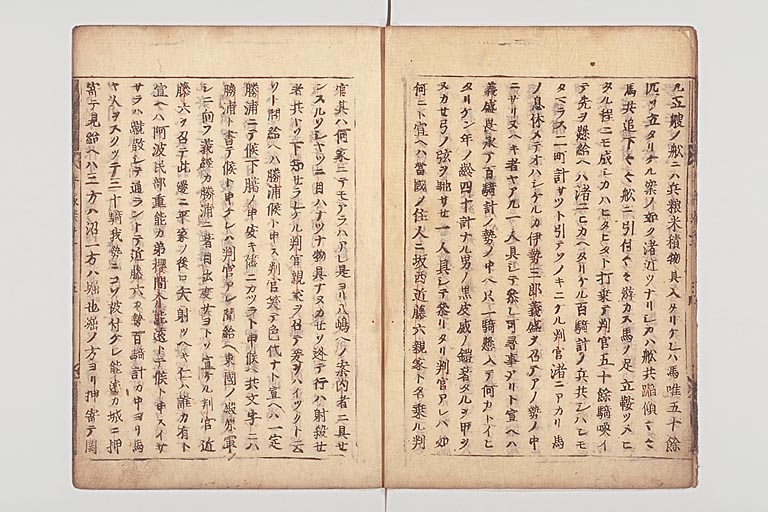 九五艘ノ舩ニハ兵粮米積物具入タリケレハ馬唯五十余
匹ソ立タリケル案ノ如ク渚近ツナリシカハ舩共踏傾々々
馬共追下々々舩ニ引付々々游カス馬ノ足立鞍ツメヒ
タル程ニモ成シカハヒタヒタト打乗テ判官五十余騎喚イ
テ先ヲ懸給ヘハ渚ニヒカヘタリケル百騎計ノ兵共シハシモ
タマラス二町計サツト引テソノキニケル判官渚ニアカリ馬
ノ息休メテオハシケルカ伊勢三郎義盛ヲ召テアノ勢ノ中
ニサリヌヘキ者ヤアル一人具シテ参レ可尋事アリト宣ヘハ
義盛畏承テ百騎計ノ勢ノ中ヘ只一騎懸入テ何トカイヒ
タリケン年ノ齢四十計ナル男ノ黒皮威ノ鎧著タルヲ甲ヲ
ヌカセ弓ノ弦ヲ弛サセ一人具シテ参リタリ判官アレハ如
何ニト宣ヘハ當國ノ住人ニ坂西近藤六親家ト名乗ル判
官其ハ何家ニテモアラハアレ是ヨリ八嶋ヘノ案内者ニ具セ
ンスルソシヤツニ目ハナツナ物具ナヌカセソ迯テ行ハ射殺セ
者共トソ下知セラレケル判官親家ヲ召テ爰ヲハイツクト云
ソト問給ヘハ勝浦候ト申ス判官笑テ色代ナト宣ヘハ一定
勝浦ニテ候下臈ノ申安キ儘ニカツラト申候ヘ共文字ニハ
勝浦ト書テ候ト申ケレハ判官アレ聞給ヘ東國ノ殿原軍
シニ向フ義経カ勝浦ニ著目出度サヨトソ宣ケル判官近
藤六ヲ召テ此邊ニ平家ノ後ロ矢射ツヘキ仁ハ誰カ有ト
宣ヘハ阿波民部重能カ弟櫻間介能遠トテ候ト申スイサ
サラハ蹴散シテ通ラントテ近藤六カ勢百騎計カ中ヨリ馬
ヤ人ヲスクツテ三十騎我勢ニコソ被付ケレ能遠カ城ニ押
寄テ見給ヘハ三方ハ沼一方ハ堀也堀ノ方ヨリ押寄テ閧